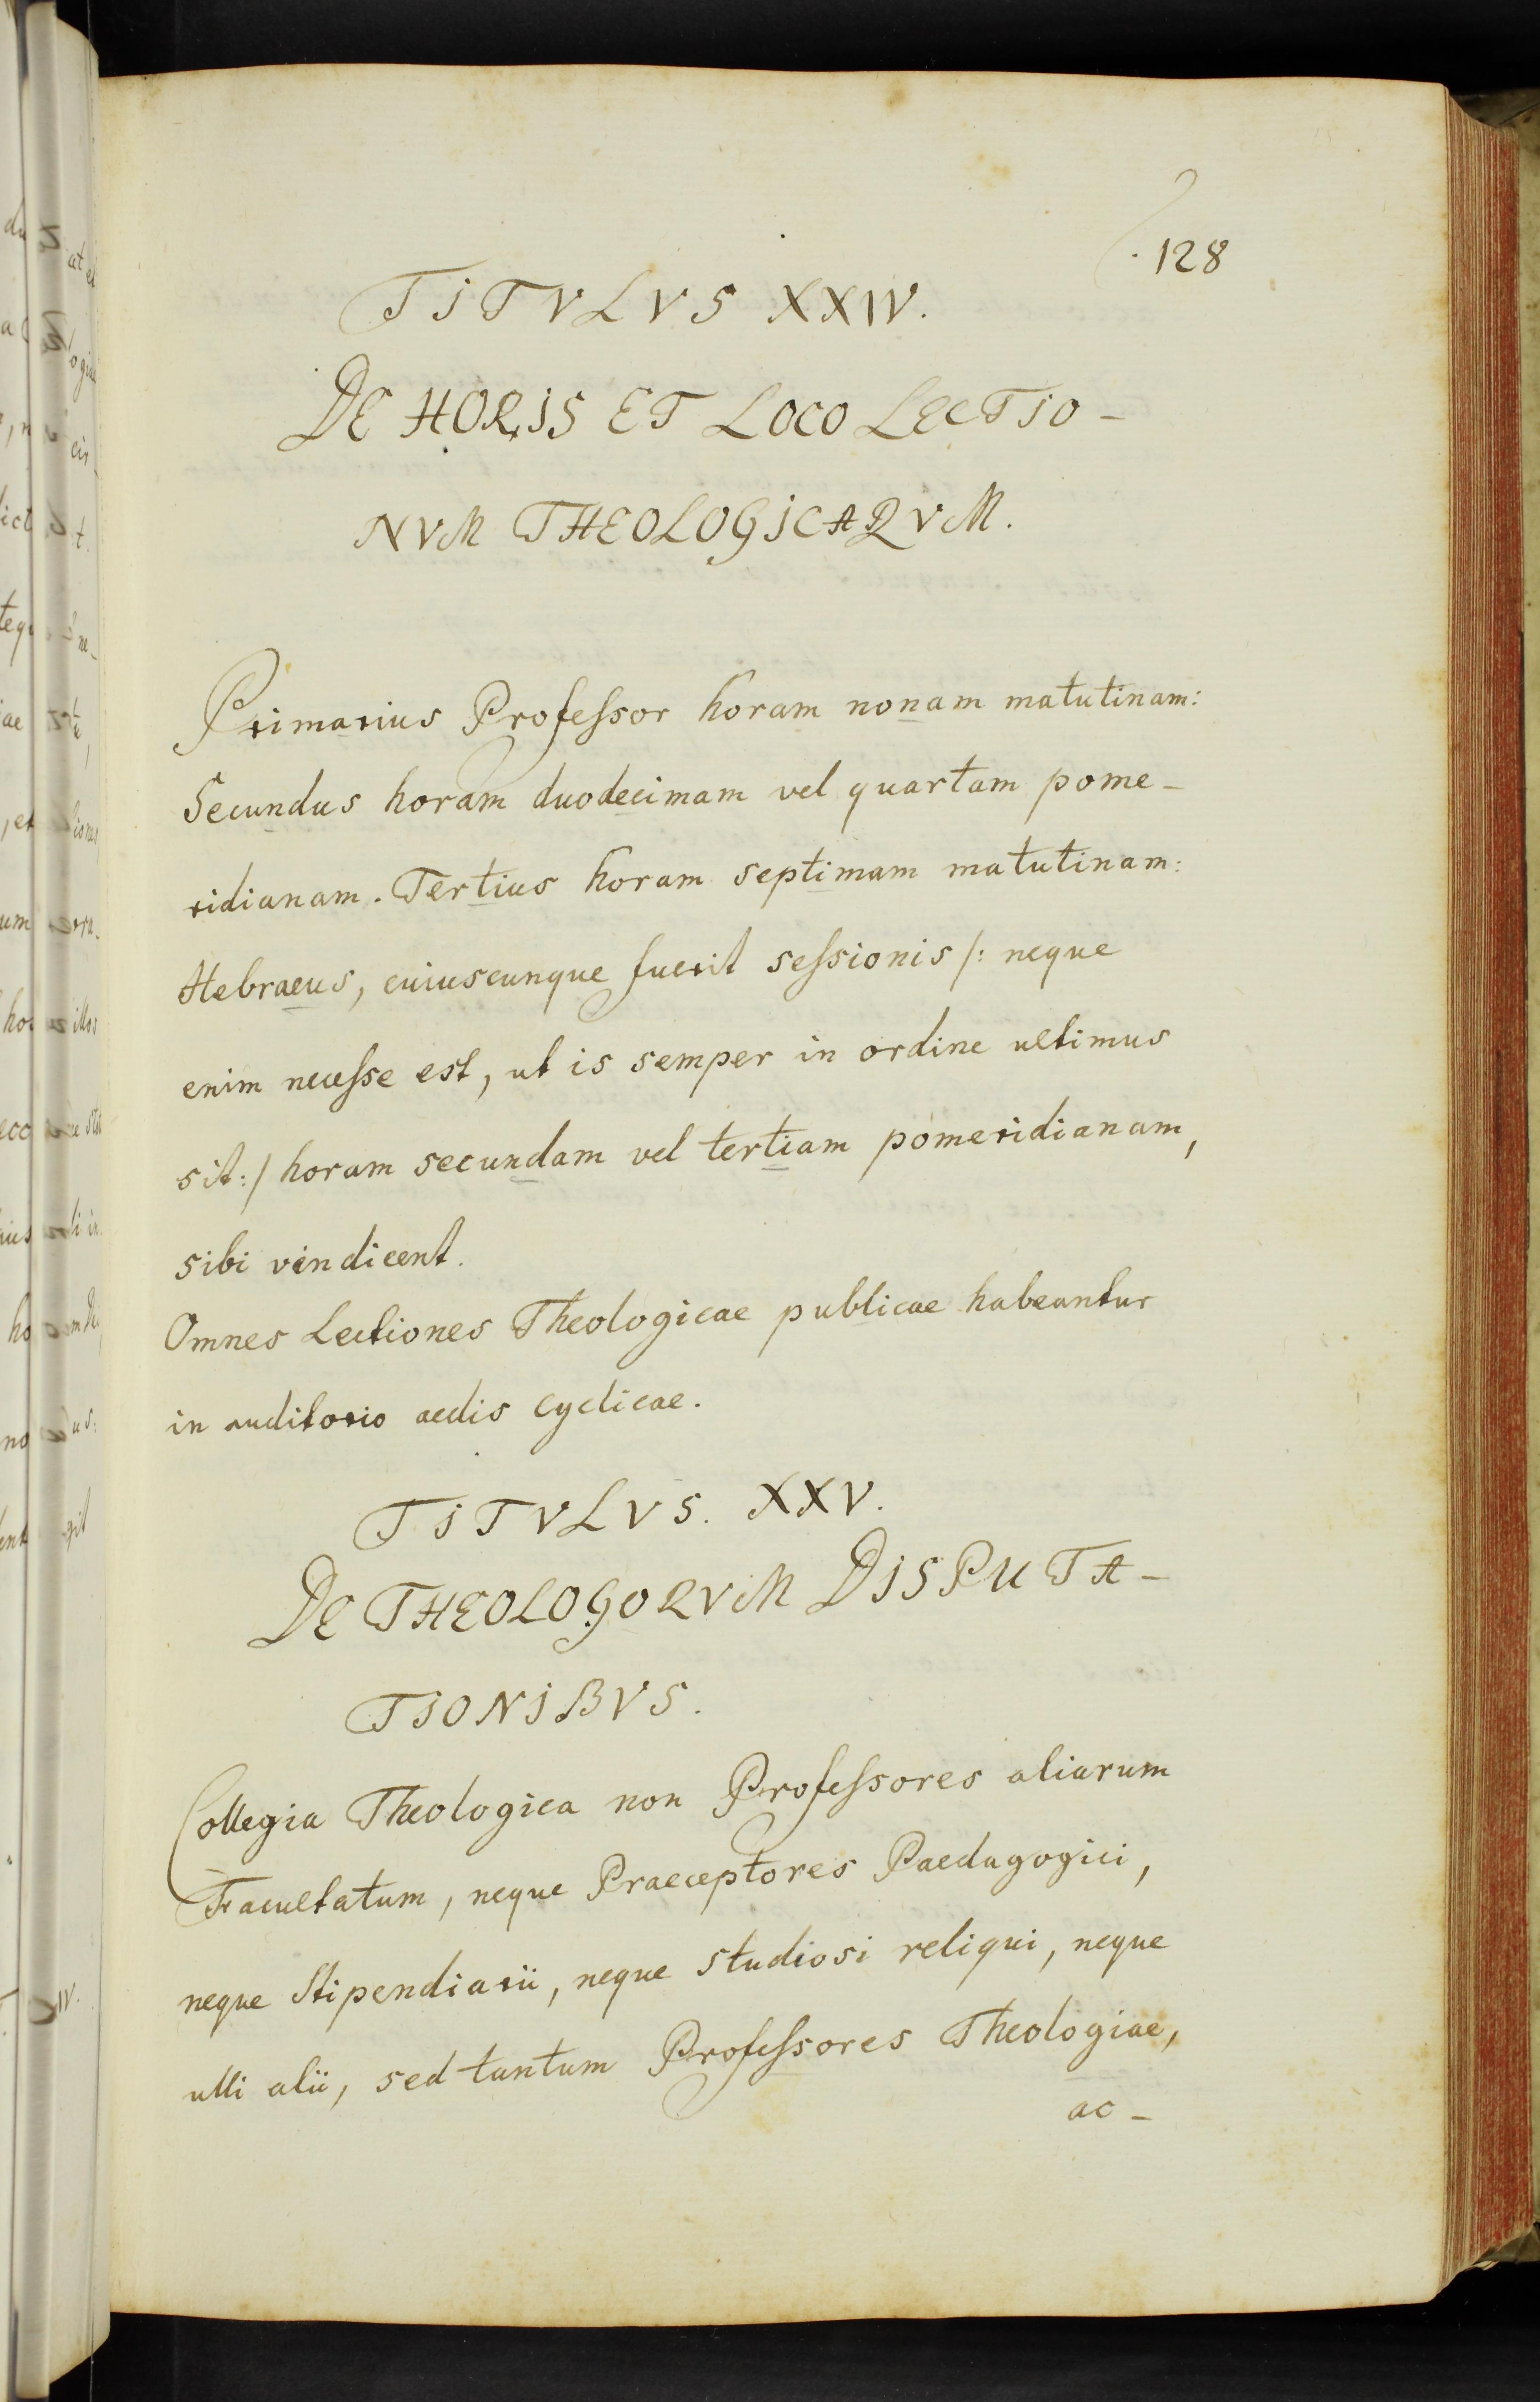 128
TITVLVS XXIV.
DE HORIS ET LOCO LECTIO-
NVM THEOLOGICARVM.
Primarius Professor horam nonam matutinam:
Secundus horam duodecimam vel quartam pome-
ridianam. Tertius horam septimam matutinam:
Hebraeus, cuiuscunque fuerit sessionis /: neque
enim necesse est, ut is semper in ordine ultimus
sit :/ horam secundam vel tertiam pomeridianam,
sibi vindicent.
Omnes Lectiones Theologicae publicae habeantur
in auditorio aedis Cyclicae.
TITVLVS. XXV.
DE THEOLOGORVM DISPUTA-
TIONIBVS.
Collegia Theologica non Professores aliarum
Facultatum, neque Praeceptores Paedagogici,
neque Stipendiarii, neque studiosi reliqui, neque
ulli alii, sed tantum Professores Theologiae,
ac-